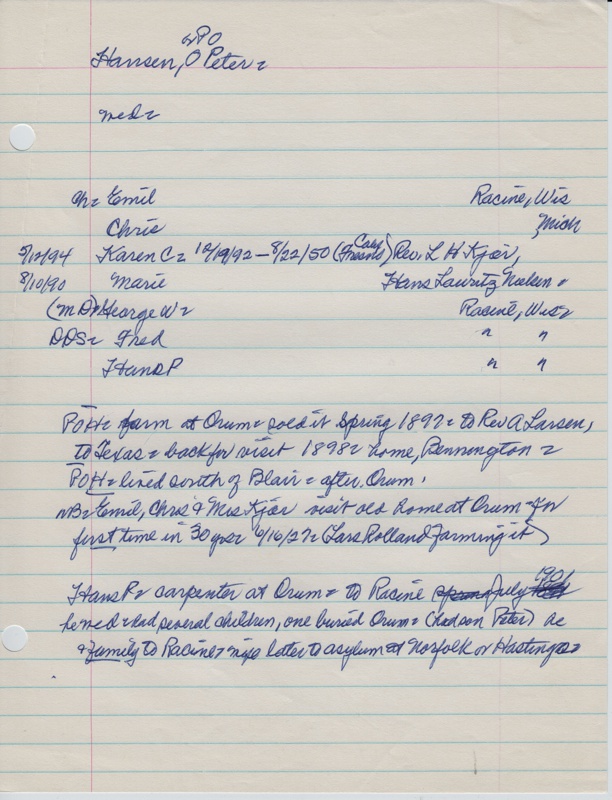 PO
Hansen, O Peter =
med =
Ch = Emil Racine, Wis
Chris Mich
5/12/94 Karen C = 12/19/92 - 8/22/50 (Fresno Calif) Rev. L H Kjær,
8/10/90 Marie Hans Lauritz Nielsen =
(MD) George W = Racine, Wis =
DDS = Fred " "
Hans P " "
POH = farm at Orum = sold it spring 1897 = to Rev A Larsen,
to Texas = back for visit 1898 = home, Bennington =
POH = lived south of Blair = after Orum.
NB = Emil, Chris & Mrs Kjær visit old home at Orum - for
first time in 30 yrs = 6/16/27 = (Lars Rolland farming it)
Hans P = carpenter at Orum = to Racine July 1901
he med = had several children, one buried Orum = (had son Peter) he
& family to Racine = later to asylum at Norfolk or Hastings =